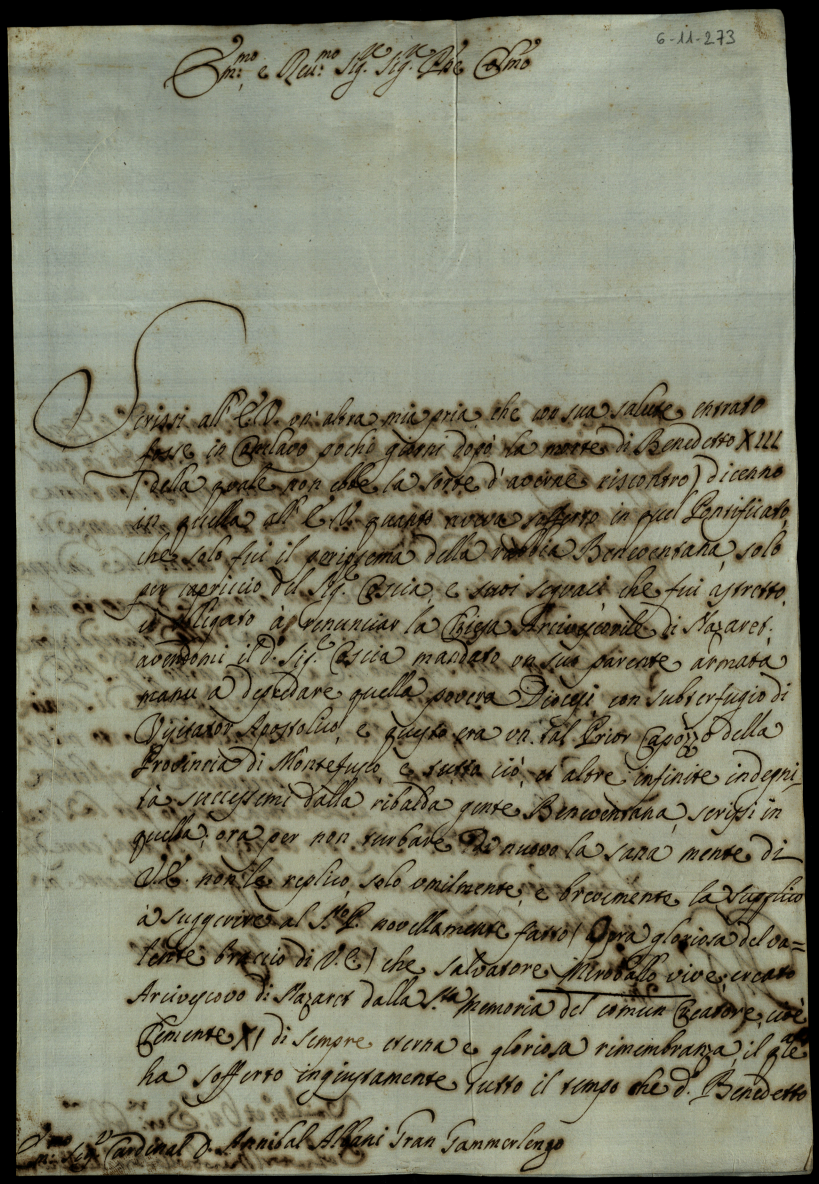 6-11-273
Em.mo e Reu.mo Sig.re Sig.re P̅ne Colmo
Scrissi all' E.V. un' altra mia pria, che con sua salute entrato
fosse in Conclavo pochi giorni dopò la morte di Benedetto XIII
(della quale non ebbe la sorte d' averne riscontro) dicenno
in quella all' E.V. quanto aveva sofferto in quel Pontificato,
che solo fui il della rabbia Beneventana, solo
per capriccio del Sig.r Coscia, e suoi seguaci che fui astretto,
et obligato à renunciar la Chiesa Arcivescovile di Nazaret,
avendomi il d.o Sig.r Coscia mandato un suo parente armata
manu à depredare quella povera Diocesi con subterfugio di
Visitator Apostolico, e questo era un tal Prior Capozzo della
Provincia di Montefusco, e tutto ciò, et altre infinite indegni-
tà successemi dalla ribalda gente Beneventana, scrissi in
quella, ora per non turbare di nuovo la sana mente di
V.E. non le replico, solo umilmente, e brevemente la supplico
à suggerire al S.to P. novellamente fatto (Opra gloriosa del va=
lente braccio di V.E.) che Salvatore Miroballo vive, creato
Arcivescovo di Nazaret dalla S.ta Memoria del comun Creatore, cioè
Clemente XI di sempre eterna e gloriosa rimembranza, il q̅le
ha sofferto ingiustamente tutto il tempo che d.o Benedetto
Em.mo Sig.r Cardinal D. Annibal Albani Gran Cammerlengo